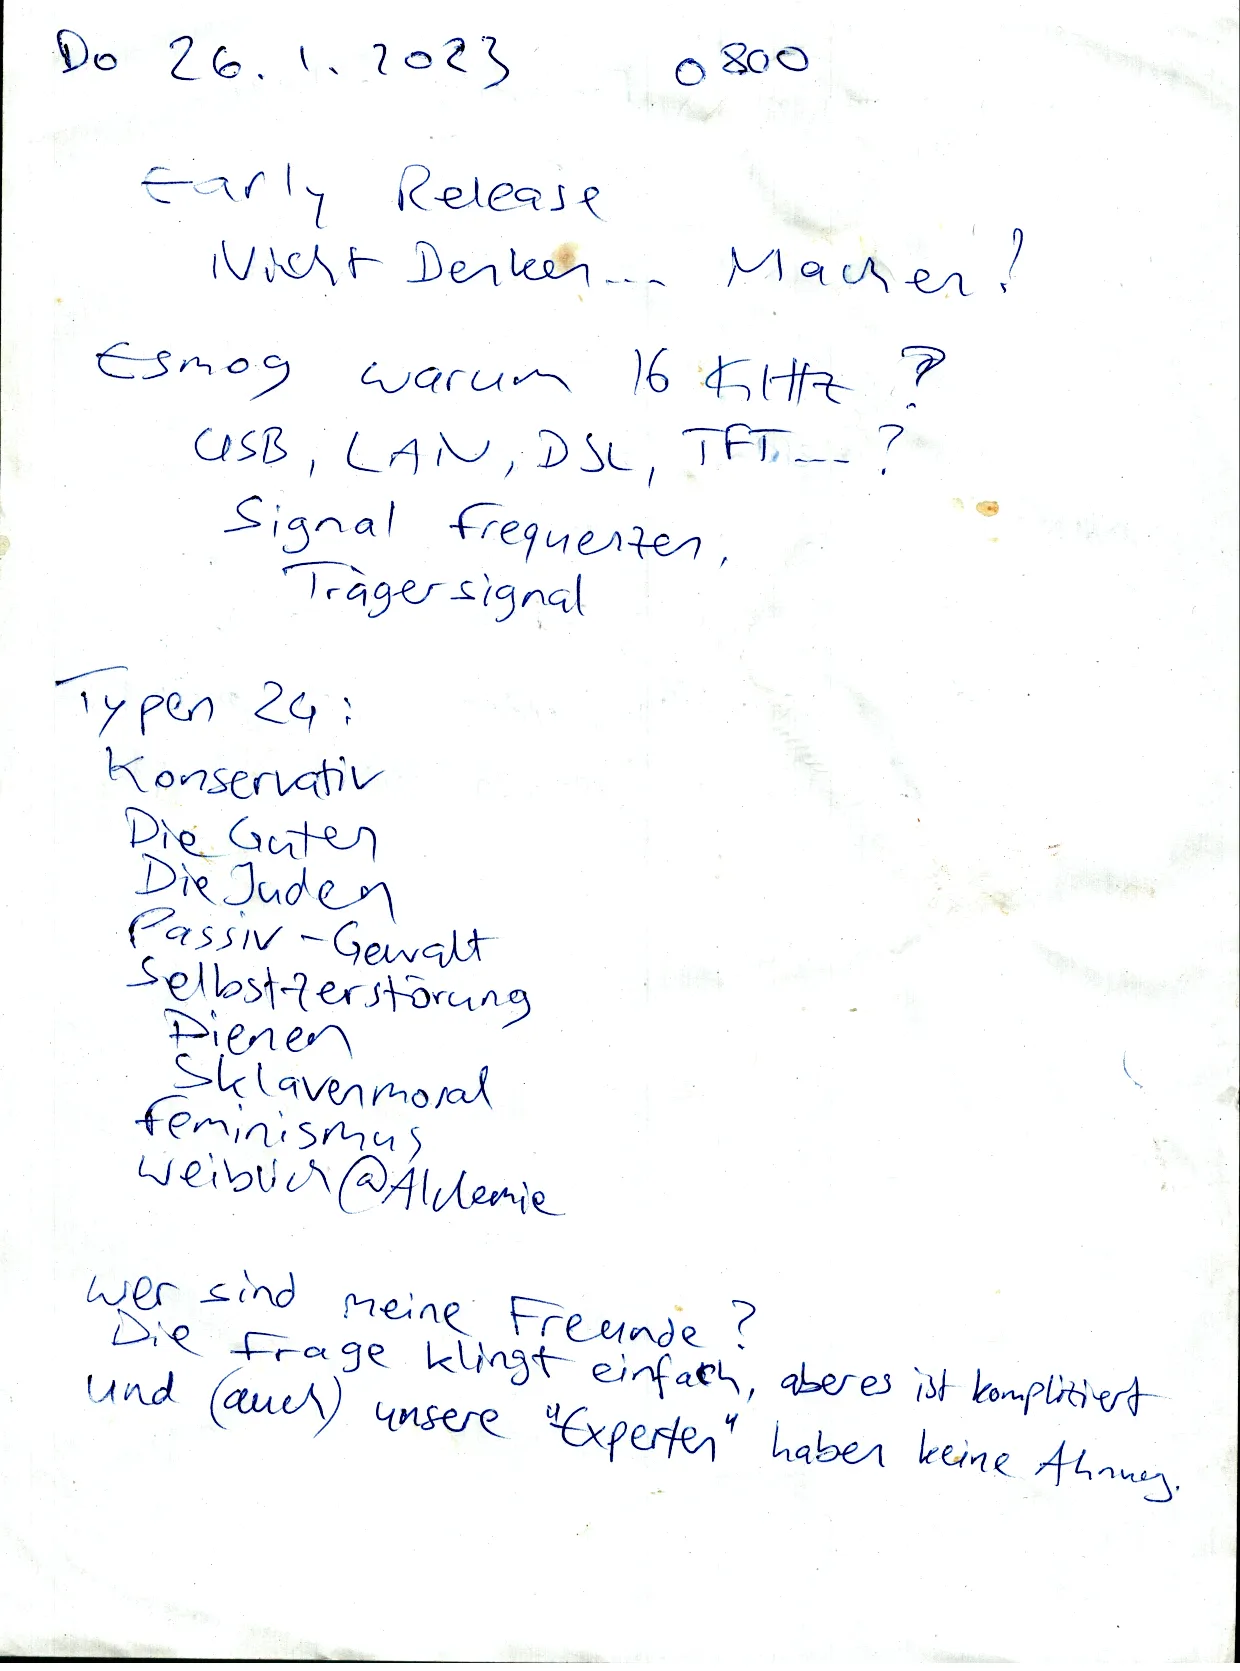 Do 26.1.2023 0800
Early Release
Nicht Denken... Machen!
Esmog warum 16 KHz ?
USB, LAN, DSL, TFT... ?
Signal Frequenzen,
Trägersignal
Typen 24:
Konservativ
Die Guten
Die Juden
Passiv-Gewalt
Selbst-Zerstörung
Dienen
Sklavenmoral
Feminismus
Weiblich@Alchemie
Wer sind meine Freunde?
Die Frage klingt einfach, aber es ist kompliziert
und (auch) unsere "Experten" haben keine Ahnung.